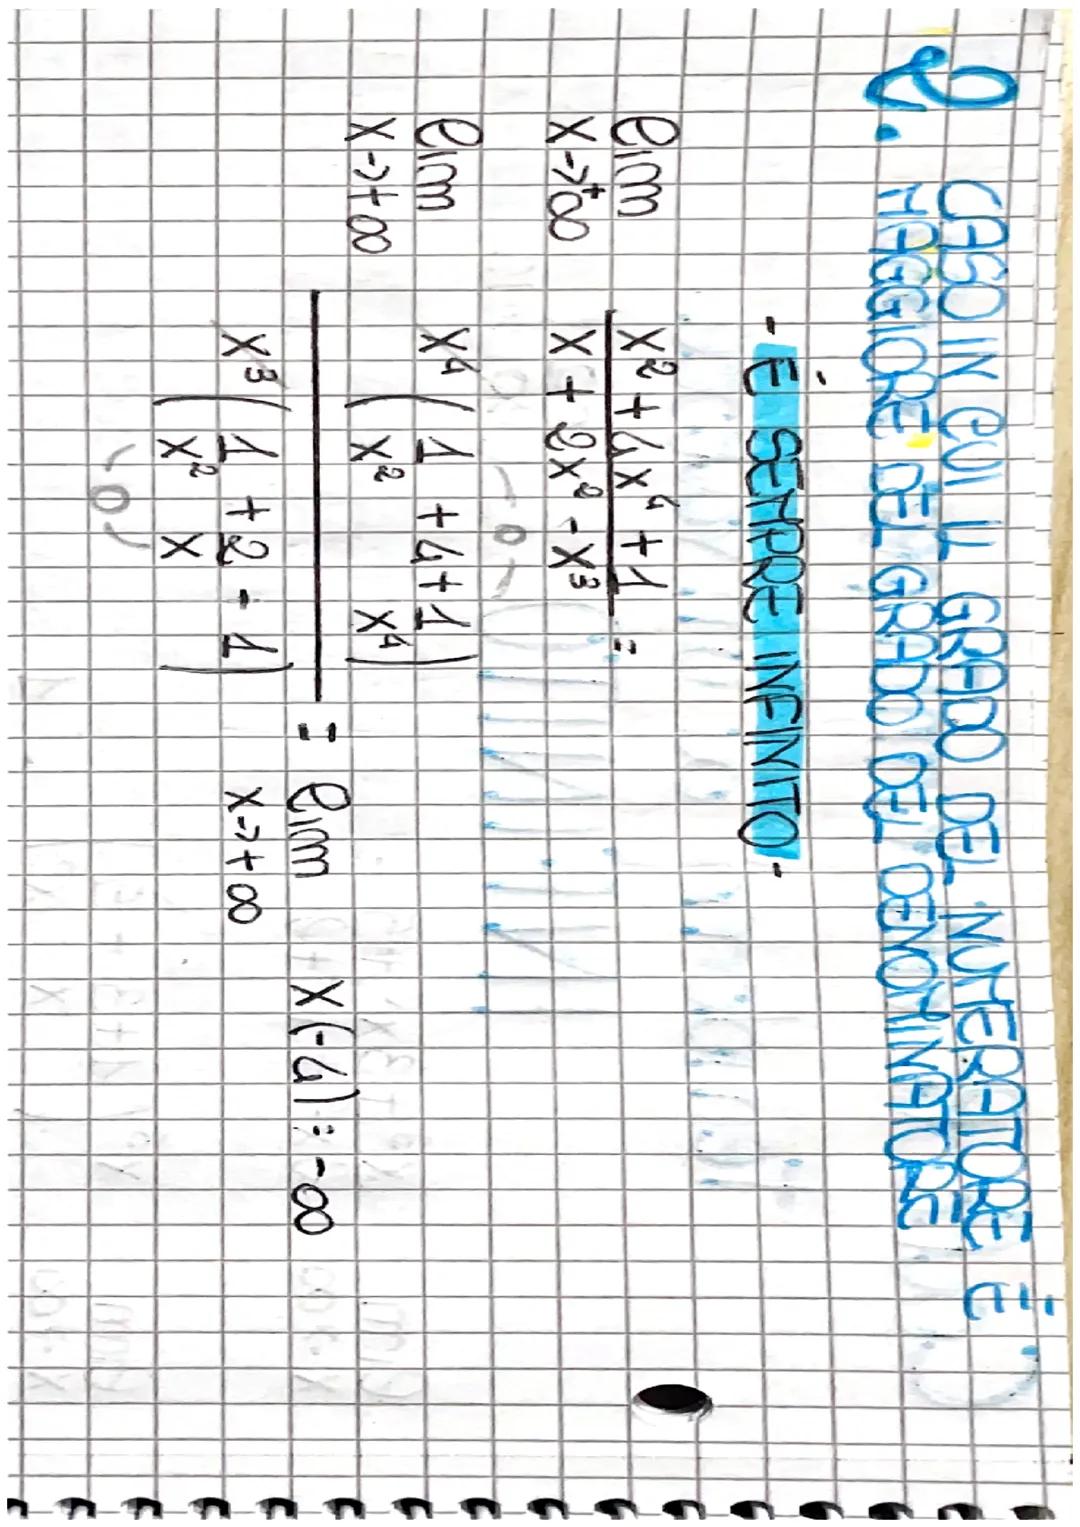 2. CASO IN CUI IL GRADO DEL NUMERATORE È
MAGGIORE DEL GRADO DEL DENOMINATORE
- È SEMPRE INFINITO -
lim x²+4x⁴+1 =
x→+∞ x+2x²-x³
lim x⁴ ( 1 + 4 + 1 )
x→+∞ x² x⁴
= lim x(-4) = -∞
x→+∞
x³ ( 1 + 2 - 1 )
x² x
0
0